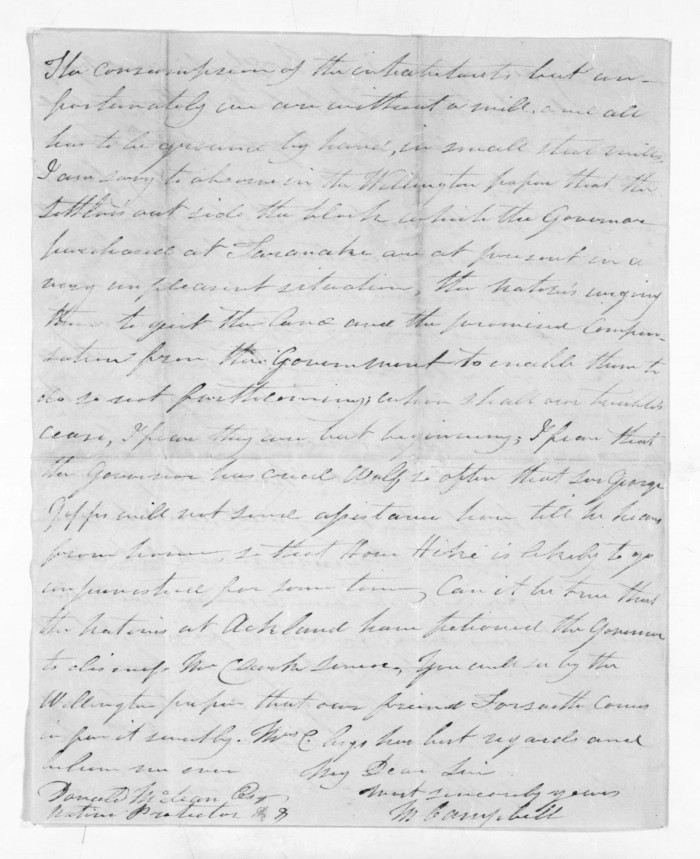 the consumption of the inhabitants but un-
fortunately we are without a mill, and all
has to be ground by hand, in small steel mills,
I am sorry to observe in the Wellington paper that the
settlers out side the block which the Governor
purchased at Taranake are at present in a
very unpleasant situation, the natives urging
them to quit the land and the promised Compen-
sation from the Government to enable them to
do so not forthcoming; when shall our troubles
cease, I fear they are but beginning; I fear that
the Governor has cried Wolf so often that Sir George
Gipps will not send assistance here till he hears
from home, so that Hone Hike is likely to go
unpunished for some time, Can it be true that
the natives at Ackland have petioned the Governor
to dismiss Mr Clarke Senior, You will see by the
Wellington paper that our friend Forsaith Comes
in for it sweetly. Mrs C. begs her best regards and
believe me ever My Dear Sir
most sincerely yours
Donald McLean Esq
Native Protector &c &c
M Campbell